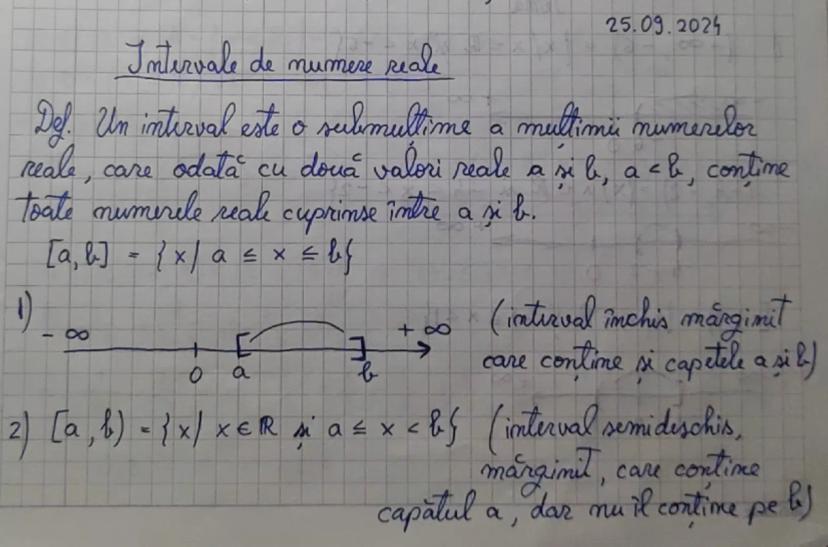 25.09.2024
Intervale de numere reale
Def. Un interval este o submulțime a mulțimii numerelor
reale, care odată cu două valori reale a și b, a < b, conține
toate numerele reale cuprinse între a și b.
[a, b] = {x | a ≤ x ≤ b}
1)
- ∞ + ∞ (interval închis mărginit
0 a b care conține și capetele a și b)
2) [a, b) = {x | x ∈ ℝ și a ≤ x < b} (interval semideschis,
mărginit, care conține
capătul a, dar nu îl conține pe b)